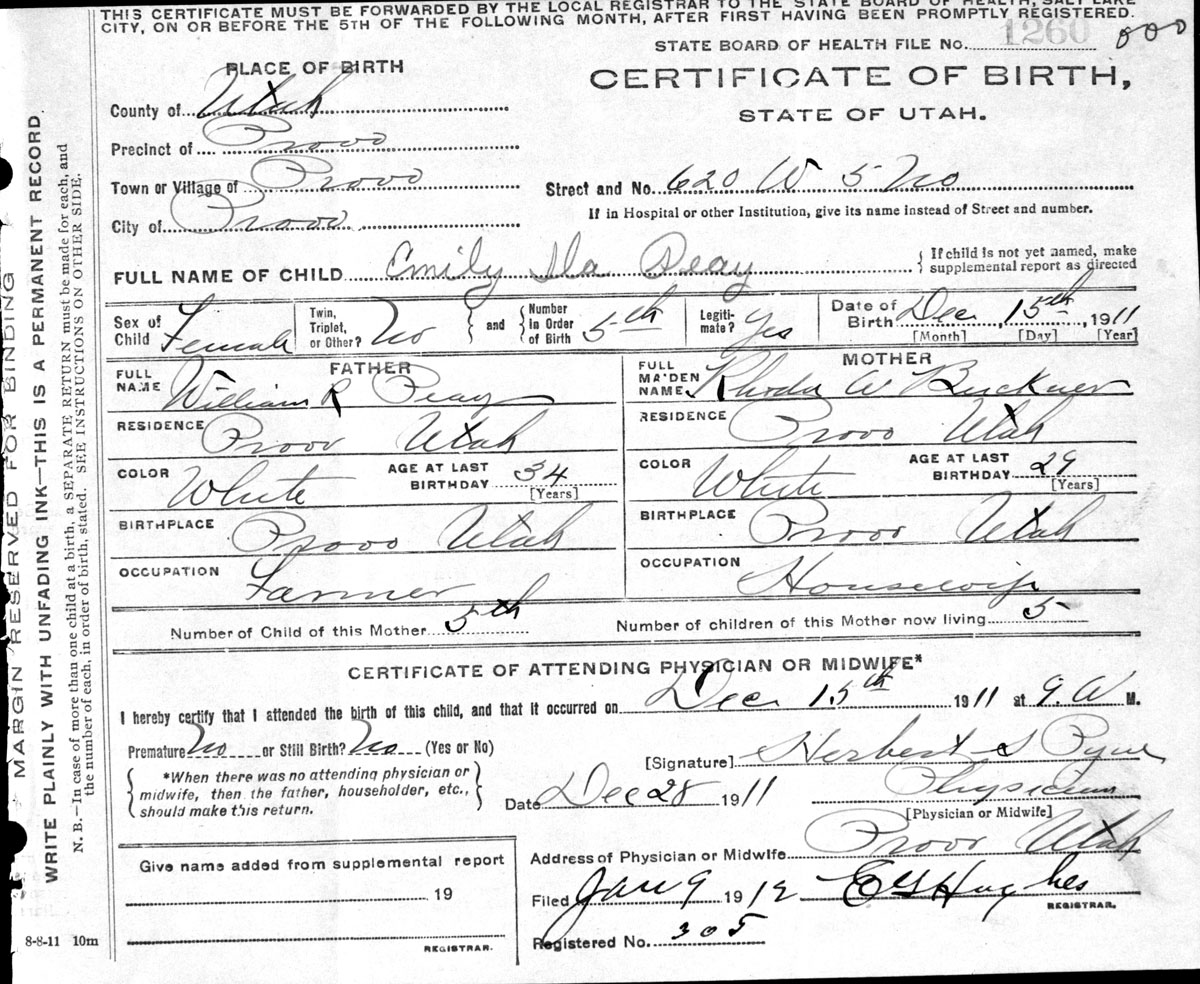 THIS CERTIFICATE MUST BE FORWARDED BY THE LOCAL REGISTRAR TO THE STATE BOARD OF HEALTH, SALT LAKE
CITY, ON OR BEFORE THE 5TH OF THE FOLLOWING MONTH, AFTER FIRST HAVING BEEN PROMPTLY REGISTERED.
STATE BOARD OF HEALTH FILE No. 1260 000
PLACE OF BIRTH
CERTIFICATE OF BIRTH,
STATE OF UTAH.
County of Utah
Precinct of Provo
Town or Village of Provo
Street and No. 620 W 5 No
If in Hospital or other Institution, give its name instead of Street and number.
City of Provo
FULL NAME OF CHILD Emily Ila Peay
If child is not yet named, make
supplemental report as directed
Sex of Child Female
Twin, Triplet, or Other? No
and Number in Order of Birth 5th
Legiti-mate? Yes
Date of Birth Dec 15th, 1911
[Month] [Day] [Year]
FATHER
MOTHER
FULL NAME William R Peay
FULL MAIDEN NAME Rhoda W Buckner
RESIDENCE Provo Utah
RESIDENCE Provo Utah
COLOR White AGE AT LAST BIRTHDAY 34 [Years]
COLOR White AGE AT LAST BIRTHDAY 29 [Years]
BIRTHPLACE Provo Utah
BIRTHPLACE Provo Utah
OCCUPATION Farmer
OCCUPATION Housewife
Number of Child of this Mother 5th
Number of children of this Mother now living 5
CERTIFICATE OF ATTENDING PHYSICIAN OR MIDWIFE*
I hereby certify that I attended the birth of this child, and that it occurred on Dec 15th 1911 at 9. A M.
Premature No or Still Birth? No (Yes or No)
[Signature] Herbert S Pyne
*When there was no attending physician or
midwife, then the father, householder, etc.,
should make this return.
Date Dec 28 1911
Physician
[Physician or Midwife]
Give name added from supplemental report
19
REGISTRAR.
Address of Physician or Midwife Provo Utah
Filed Jan 9 1912 E G Hughes
REGISTRAR.
Registered No. 305
8-8-11 10m
MARGIN RESERVED FOR BINDING
WRITE PLAINLY WITH UNFADING INK—THIS IS A PERMANENT RECORD
N. B.—In case of more than one child at a birth, a SEPARATE RETURN must be made for each, and
the number of each, in order of birth, stated. SEE INSTRUCTIONS ON OTHER SIDE.